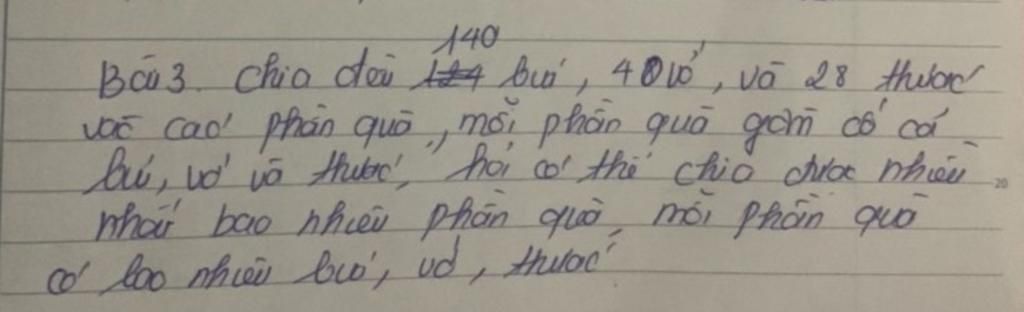 140
Bài 3. Chia đều 124 bút, 40 vở, và 28 thước
vào các phần quà, mỗi phần quà gồm có cả
bút, vở và thước, hỏi có thể chia được nhiều
nhất bao nhiêu phần quà, mỗi phần quà
có bao nhiêu bút, vở, thước